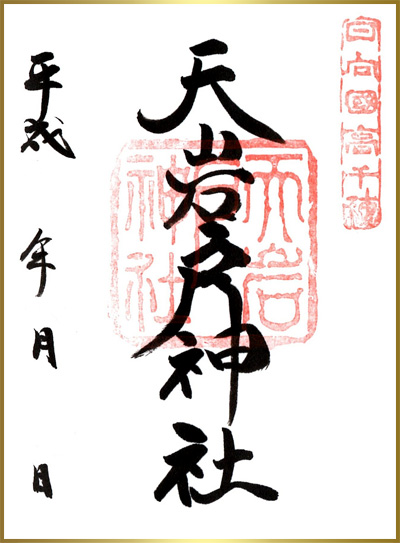 日向國高千穂
天岩戸神社
天岩
神社
平成 年 月 日